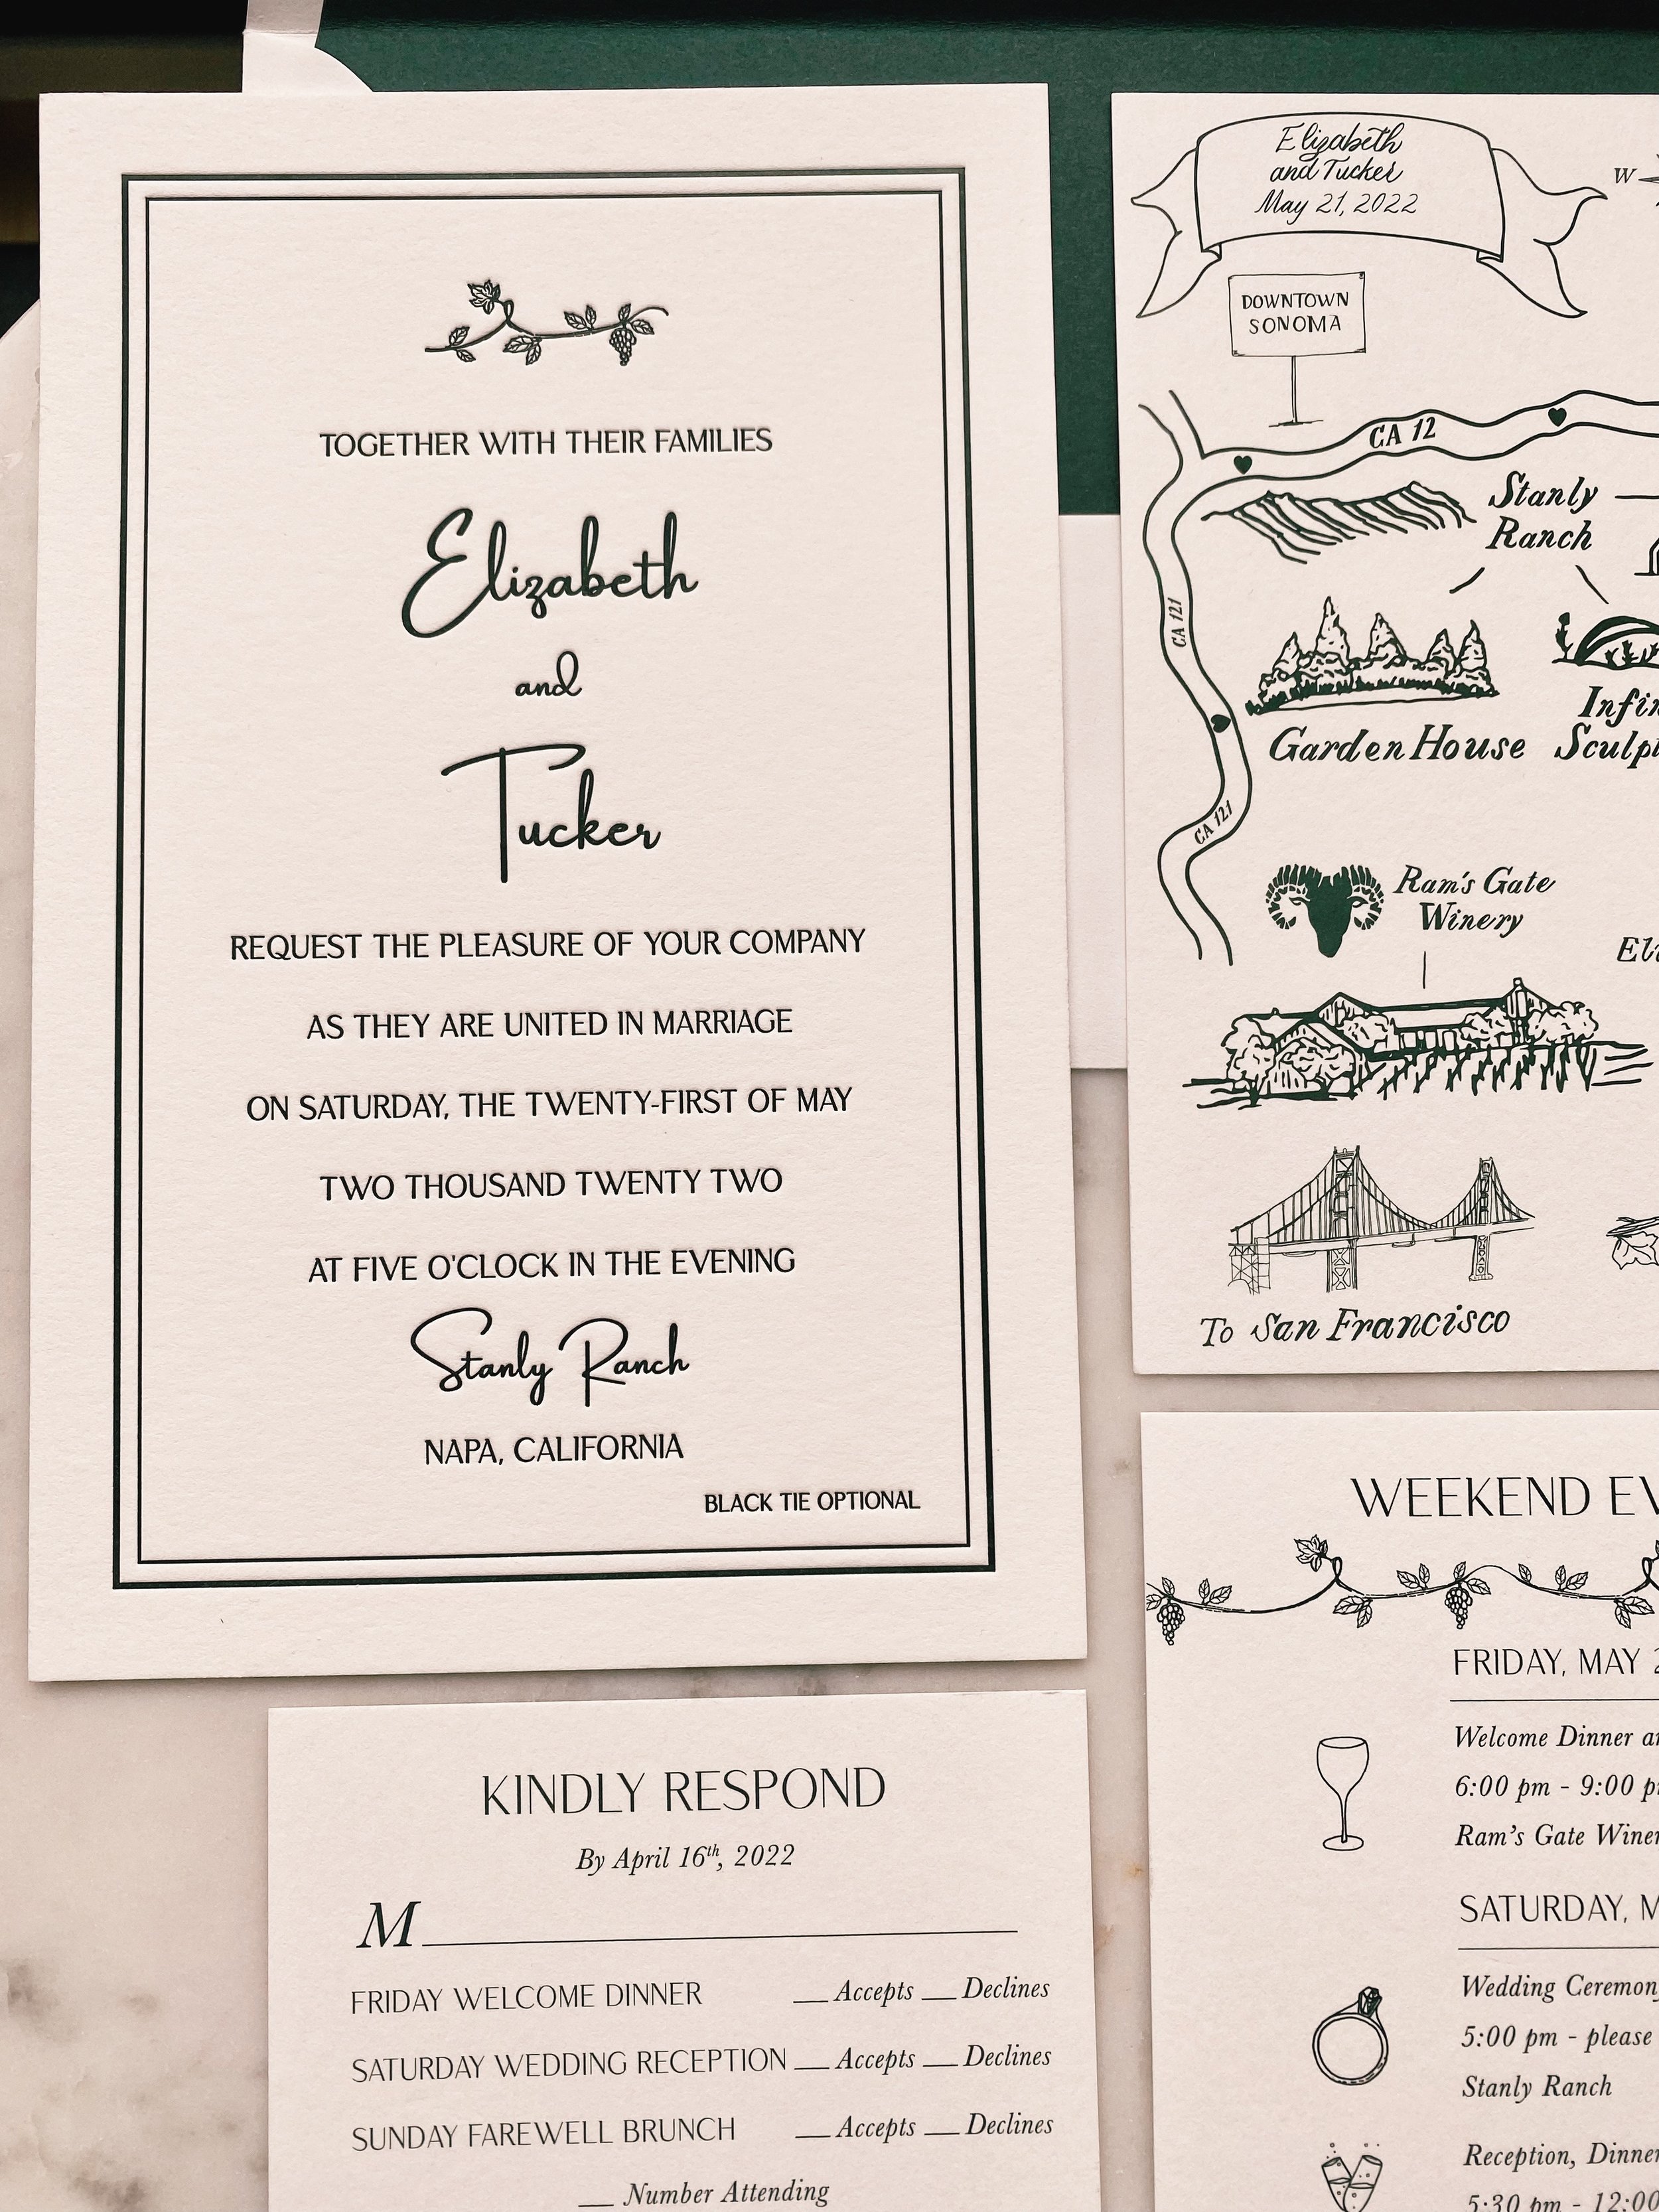 TOGETHER WITH THEIR FAMILIES
Elizabeth
and
Tucker
REQUEST THE PLEASURE OF YOUR COMPANY
AS THEY ARE UNITED IN MARRIAGE
ON SATURDAY, THE TWENTY-FIRST OF MAY
TWO THOUSAND TWENTY TWO
AT FIVE O'CLOCK IN THE EVENING
Stanly Ranch
NAPA, CALIFORNIA
BLACK TIE OPTIONAL
Elizabeth
and Tucker
May 21, 2022
W
DOWNTOWN
SONOMA
CA 12
Stanly
Ranch
CA 121
Garden House
CA 121
Ram's Gate
Winery
To San Francisco
KINDLY RESPOND
By April 16th, 2022
M
FRIDAY WELCOME DINNER __ Accepts __ Declines
SATURDAY WEDDING RECEPTION __ Accepts __ Declines
SUNDAY FAREWELL BRUNCH __ Accepts __ Declines
__ Number Attending
WEEKEND
FRIDAY, MAY
Welcome Dinner
6:00 pm - 9:00
Ram's Gate
SATURDAY,
Wedding
5:00 pm - please
Stanly Ranch
Reception,
5:30 pm -